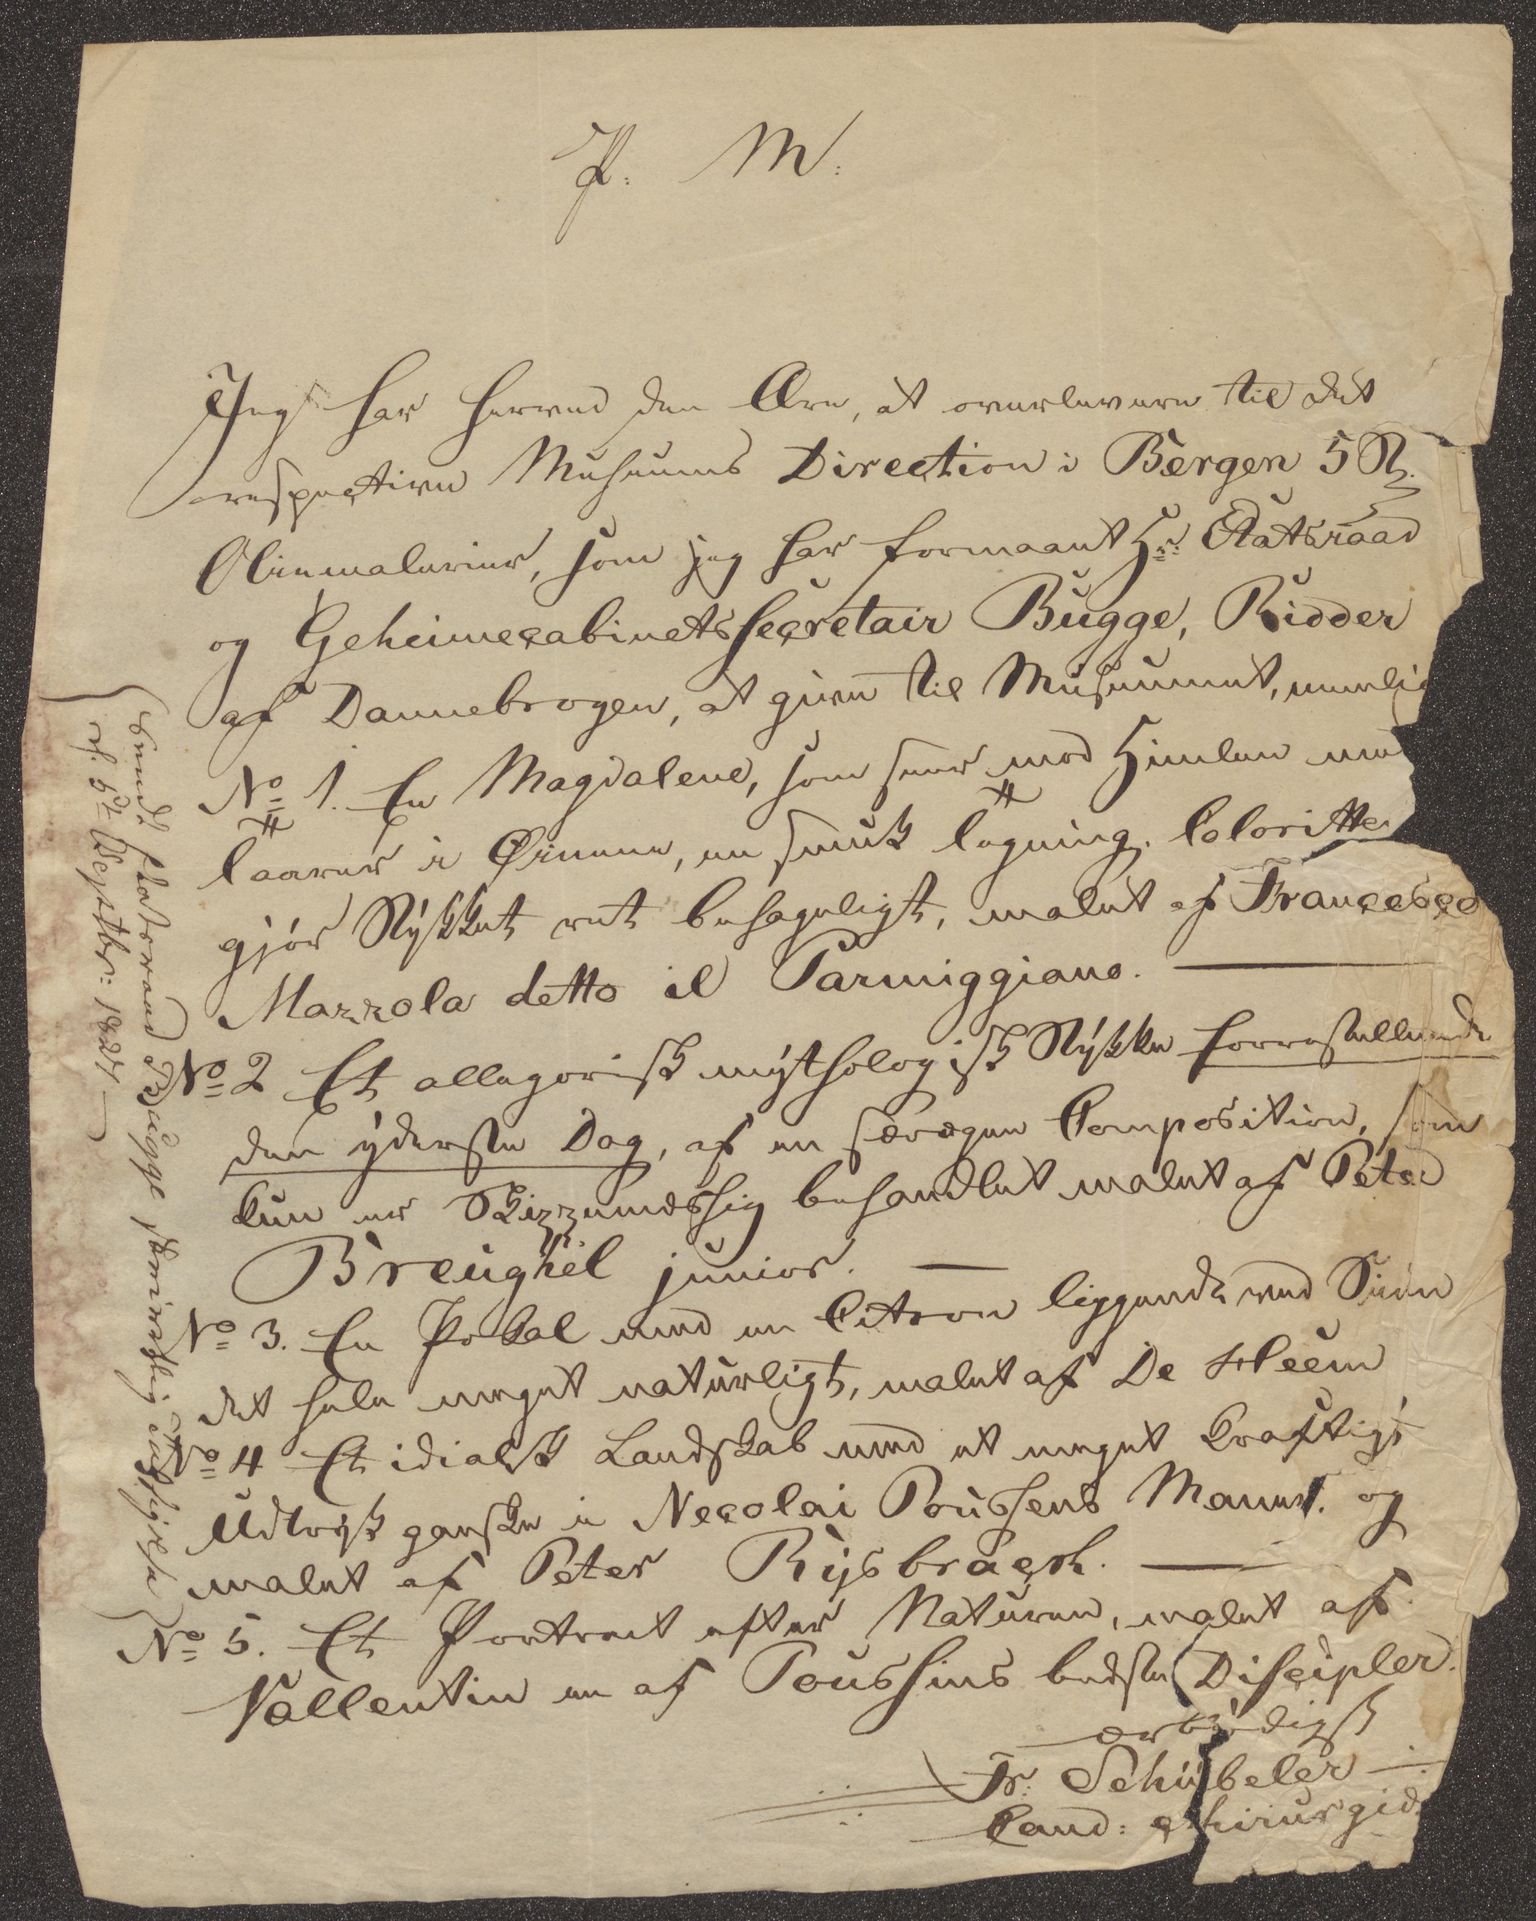 P. M:
Jeg har herved den Ære, at overlevere til det
respective Museums Direction i Bergen 5 St.
Oliemalerier, som jeg har formaaet Hr: Etatsraad
og Geheimecabinetssecretair Bugge, Ridder
af Dannebrogen, at give til Museumet, nemlig
No 1. En Magdalene, som seer mod Himlen med
Taarer i Øinene, en smuk Tegning. Coloritten
gjør Stykket ret behageligt, malet af Francesco
Mazzola detto il Parmiggiano.
No 2 Et allegorisk mythologisk Stykke forrestellende
den yderste Dag, af en særegen Composition, som
kun er Skizzemæssig behandlet malet af Peter
Breughel junior.
No 3. En Pokal med en Citron liggende ved Siden
det hele meget naturligt, malet af De Heem
No 4 Et idialsk Landskab med et meget kraftigt
Udtryk ganske i Necolai Poussens Maneer. og
malet af Peter Rysbraech.
No 5. Et Portrait efter Naturen, malet af
Vallentin en af Poussins bedste Discipler.
ærbødigst
Fr: Schübeler
Cand: chirurgiæ
Sendt Etatsraad Bugge
d. 5t Septbr: 1827